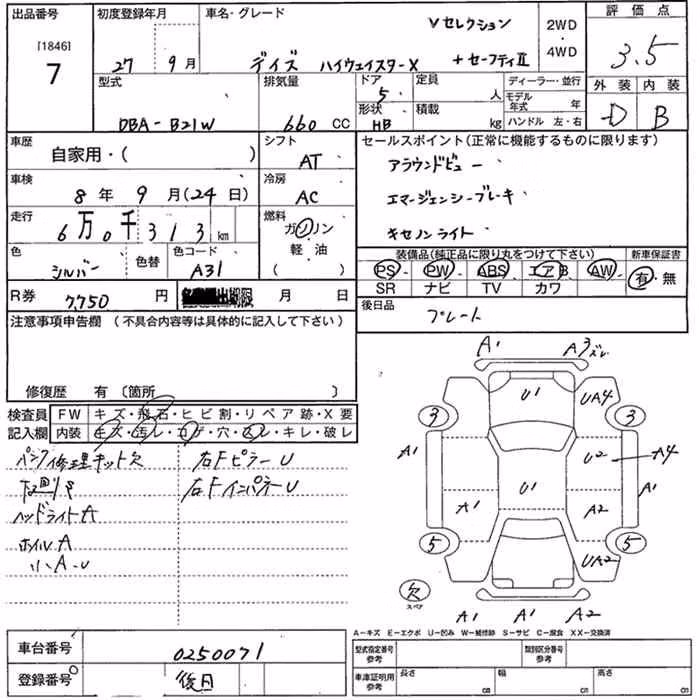 出品番号
［1846］
7
初度登録年月
27 9月
車名・グレード
デイズ ハイウェイスターX
Vセレクション
+セーフティⅡ
2WD
・
4WD
評価点
3.5
外装 内装
D B
型式
DBA-B21W
排気量
660 CC
ドア
5
形状
HB
定員
人
積載
kg
ディーラー・並行
モデル年式 年
ハンドル 左・右
車歴
自家用・( )
シフト
AT
車検
8年 9月(24日)
冷房
AC
走行
6万0千313km
燃料
ガソリン
軽・油
( )
色
シルバー
色替
色コード
A31
R券
7,750 円
月 日
セールスポイント(正常に機能するものに限ります)
アラウンドビュー
エマージェンシーブレーキ
キセノンライト
装備品(純正品に限り丸をつけて下さい)
新車保証書
PS・PW・ABS・エアB・AW・
SR ナビ TV カワ
有・無
後日品
プレート
注意事項申告欄 (不具合内容等は具体的に記入して下さい)
修復歴 有〔箇所 〕
検査員
記入欄
FW キズ・飛石・ヒビ割・リペア跡・X要
内装 キズ・汚レ・コゲ・穴・スレ・キレ・破レ
パンク修理キット欠
右FピラーU
下回りS
右FインパネーU
ヘッドライトA
ホイルA
小A-U
A1 A3ズレ
U1 UA4
3 3
A1 U2 A4
A1 U1 A2 A1
5 5
UA2
欠
スペア
A1 A1 A2
A-キズ E-エクボ U-凹み W-補修跡 S-サビ C-腐食 XX-交換済
車台番号
0250071
登録番号
後日
型式指定番号
参考
類別区分番号
参考
車庫証明用
参考
長さ cm
幅 cm
高さ cm